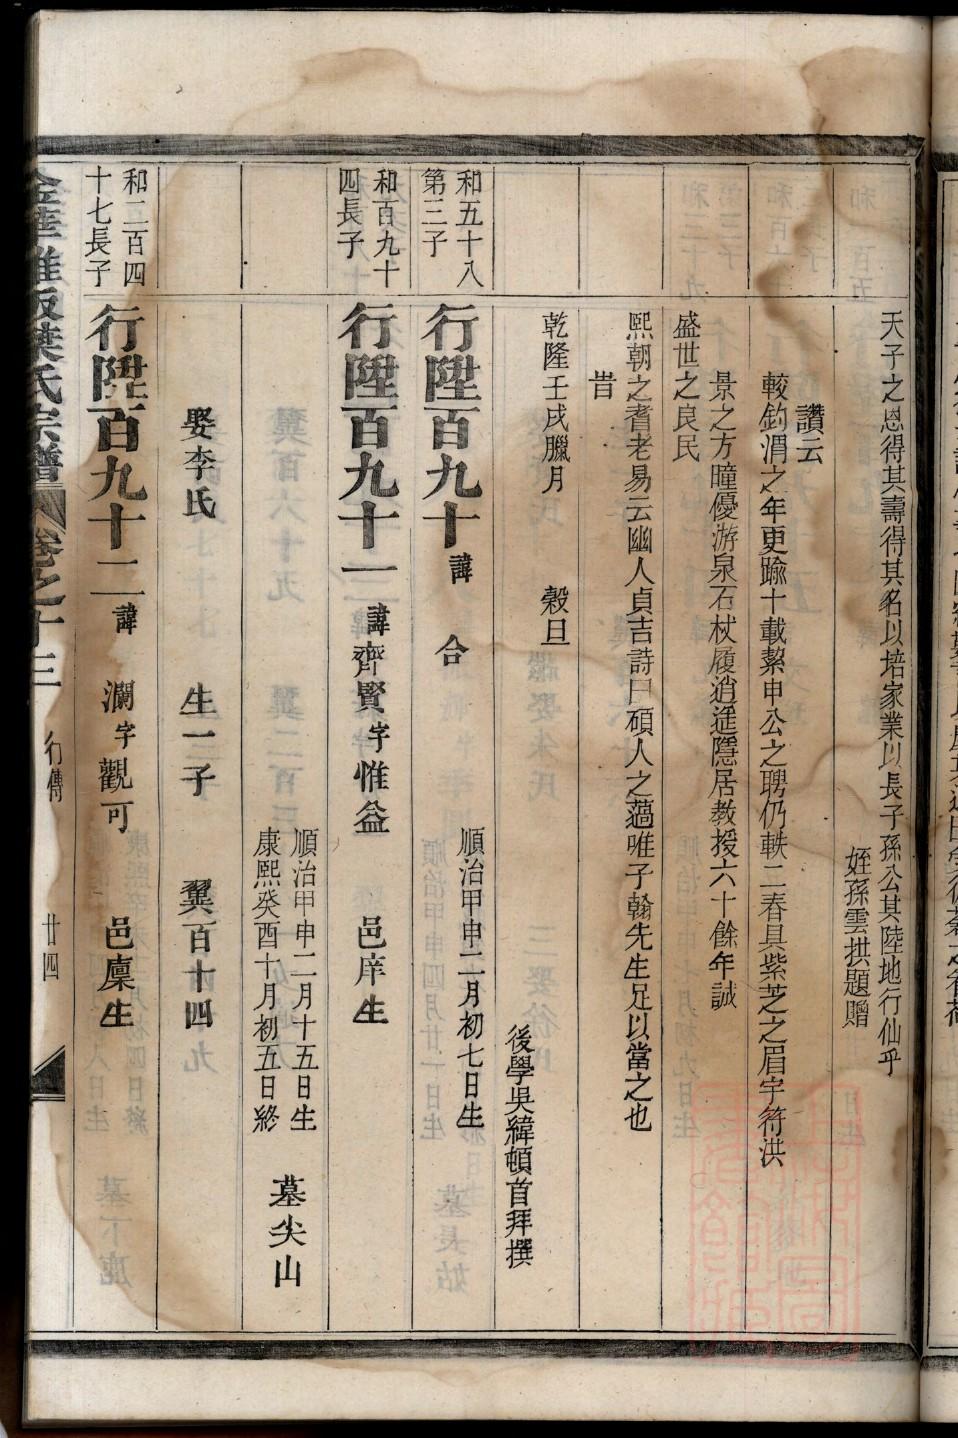 天子之恩得其壽得其名以培家業以長子孫公其陸地行仙乎
姪孫雲拱題贈
讚云
較釣渭之年更踰十載絜申公之聘仍軼二春具紫芝之眉宇符洪
景之方瞳優游泉石杖履逍遥隱居教授六十餘年誠
盛世之良民
熙朝之耆老易云幽人貞吉詩曰碩人之薖唯子翰先生足以當之也
旹
乾隆壬戌臘月 穀旦
後學吳緯頓首拜撰
和五十八
第三子
行陞百九十 諱 合 順治甲申二月初七日生
和百九十
四長子
行陞百九十一 諱齊賢字惟益 邑庠生
順治甲申二月十五日生
康熙癸酉十月初五日終
墓尖山
娶李氏 生一子 翼百十四
和二百四
十七長子
行陞百九十二 諱 瀾字觀可 邑廩生
葉氏宗譜 卷之十三 行傳 廿四